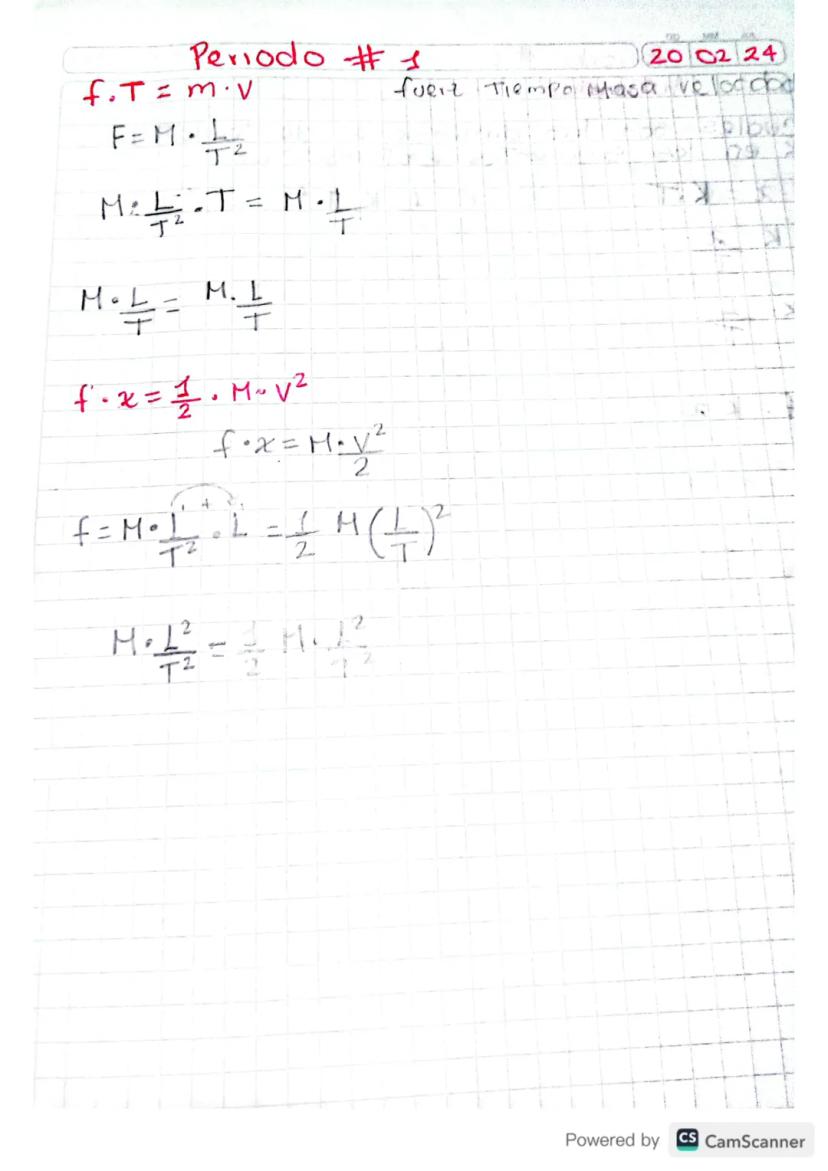 Periodo # 1 20 02 24
f.T = m.v fuerz Tiempo Masa velocidad
F = M · L/T²
M · L/T² . T = M · L/T
M · L/T = M. L/T
f · x = 1/2 · M · V²
f · x = M · V²/2
f = M · L/T² . L = 1/2 M (L/T)²
+
M · L²/T² = 1/2 M . L²/T²
Powered by CS CamScanner